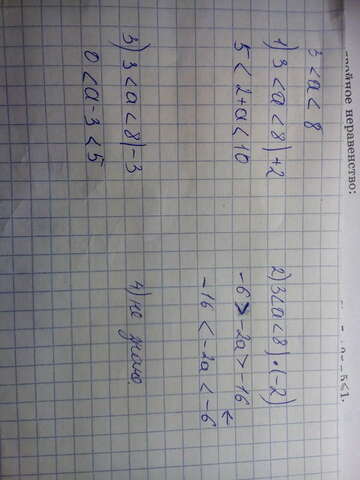 двойное неравенство:
3 < a < 8
1) 3 < a < 8) + 2
5 < 2 + a < 10
2) 3 < a < 8) · (-2)
-6 > -2a > -16
-16 < -2a < -6
3) 3 < a < 8) - 3
0 < a - 3 < 5
4) не знаю.